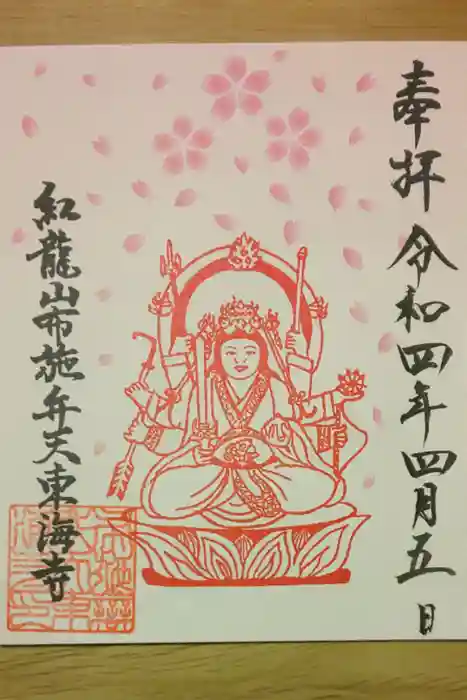 奉拝令和四年四月五日
紅龍山布施弁天東海寺